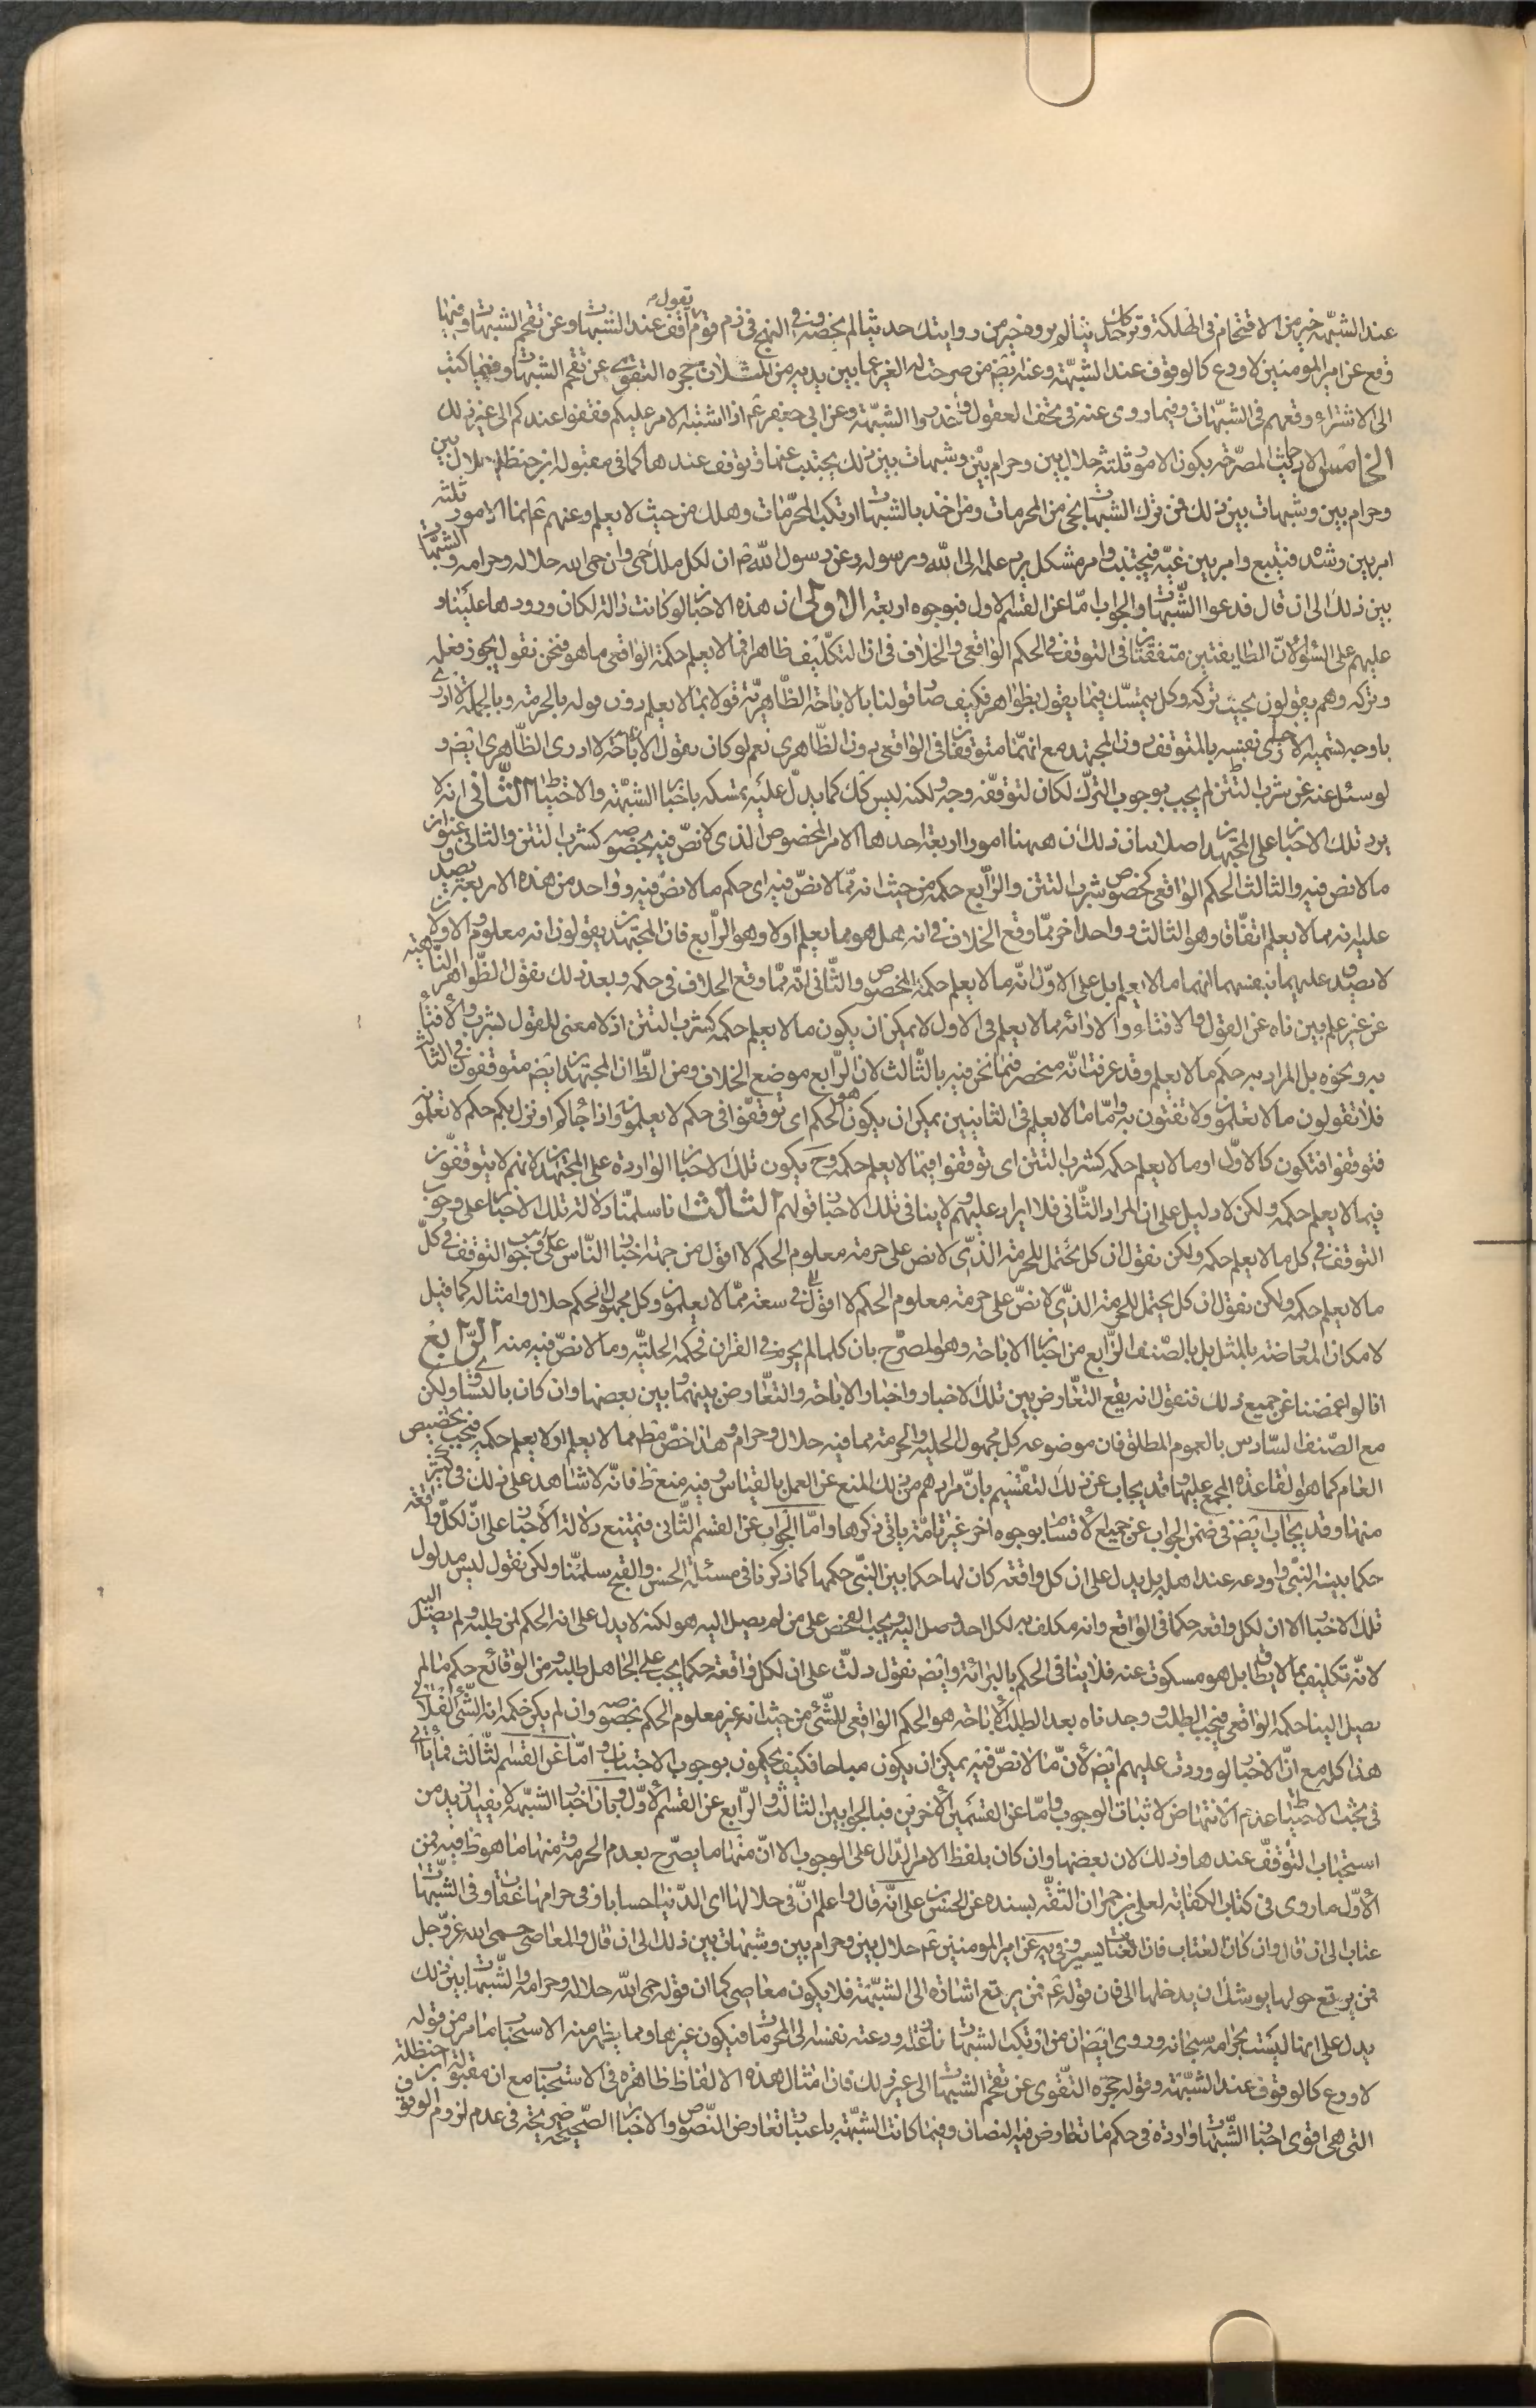 عند الشبهة خير من الاقتحام فى الهلكة وتركك حديثا لم تروه خير من روايتك حديثا لم تحصه وفى النهج فى ذم قوم يقول اقف عند الشبهات وعن تقحم الشبهات وفيها
وقع عن امير المومنين لا ورع كالوقوف عند الشبهة وعنه ايضا من صرحت له العبر عما بين يديه من المثلات حجزه التقوى عن تقحم الشبهات وفيما كتب
الى الاشتر اوقفهم فى الشبهات وفيما روى عنه فى تحف العقول واحذروا الشبهة وعن ابى جعفر ع اذا اشتبه الامر عليكم فقفوا عنده الى غير ذلك
الخامس الاحاديث المصرحة بكون الامور ثلثة حلال بين وحرام بين وشبهات بين ذلك يجتنب عنها وتوقف عندها كما فى مقبولة ابن حنظلة حلال بين
وحرام بين وشبهات بين ذلك فمن ترك الشبهات نجى من المحرمات ومن اخذ بالشبهات ارتكب المحرمات وهلك من حيث لا يعلم وعنهم ع انما الامور ثلثة
امر بين رشده فيتبع وامر بين غيه فيجتنب وامر مشكل يرد علمه الى الله ورسوله وعن رسول الله ص ان لكل ملك حمى وان حمى الله حلاله وحرامه والشبهات
بين ذلك الى ان قال فدعوا الشبهات والجواب اما عن القسم الاول فبوجوه اربعة الاول ان هذه الاخبار لو كانت دالة لكان ورودها علينا و
عليهم على السواء لان الطايفتين متفقتان فى التوقف فى الحكم الواقعى والخلاف فى ان التكليف ظاهرا فيما لا يعلم حكمه الواقعى ما هو فنحن نقول يجوز فعله
وتركه وهم يقولون يجب تركه وكل يتمسك فيما يقول بظواهر فكيف صار قولنا بالاباحة الظاهرية قولا بما لا يعلم دون قوله بالحرمة وبالجملة لا ادرى
باى وجه تسميه الاخبارى نفسه بالمتوقف دون المجتهد مع انهما متوقفان فى الواقعى دون الظاهرى نعم لو كان يقول الاباحة لا ادرى الظاهرى ايضا و
لو سئل عنه عن شرب التتن لم يجب بوجوب الترك لكان لتوقفه وجه ولكنه ليس كك كما يدل عليه تمسكه باخبار الشبهة والاحتياط الثانى انه لا
يرد تلك الاخبار على المجتهدين اصلا بيان ذلك ان ههنا امورا اربعة احدها الامر المخصوص الذى لا نص فيه بخصوصه كشرب التتن والثانى عنوان
ما لا نص فيه والثالث الحكم الواقعى لخصوص شرب التتن والرابع حكمه من حيث انه مما لا نص فيه اى حكم ما لا نص فيه وواحد من هذه الاربعة يصدق
عليه انه مما لا يعلم اتفاقا وهو الثالث وواحد اخر مما وقع الخلاف فى انه هل هو مما يعلم اولا وهو الرابع فان المجتهدين يقولون انه معلوم والاولان
لا يصدق عليهما بنفسهما انهما ما لا يعلم بل على الاول انه ما لا يعلم حكمه المخصوص والثانى انه مما وقع الخلاف فى حكمه وبعد ذلك نقول الظواهر الناهية
عن غير علم بين ناه عن القول والافتاء والا رائه مما لا يعلم فى الاول لا يمكن ان يكون ما لا يعلم حكمه كشرب التتن اذ لا معنى للقول بشرب والافتاء
به ونحوه بل المراد به حكم ما لا يعلم وقد عرفت انه منحصر فيما نحن فيه بالثالث لان الرابع موضع الخلاف ومن الظ ان المجتهدين ايضا متوقفون فى الثالث
فلا تقولون ما لا تعلمون ولا تفتون به واما ما لا يعلم فى الثانيين يمكن ان يكون هو الحكم اى توقفوا فى حكم لا يعلمون واذا جاءكم او نزل بكم حكم لا تعلمونه
فتوقفوا فتكون كالاول او ما لا يعلم حكمه كشرب التتن اى توقفوا فيما لا يعلم حكمه وح يكون تلك الاخبار الواردة على المجتهدين لانهم لا يتوقفون
فيما لا يعلم حكمه ولكن لا دليل على ان المراد الثانى فلا ايراد عليهم ولا ينافى تلك الاخبار قولهم الثالث انا سلمنا دلالة تلك الاخبار على وجوب
التوقف فى كل ما لا يعلم حكمه ولكن نقول ان كل محتمل للحرمة الذى لا نص على حرمته معلوم الحكم لا اقول من جهة اخبار الناس على وجوب التوقف فى كل
ما لا يعلم حكمه ولكن نقول ان كل محتمل للحرمة الذى لا نص على حرمته معلوم الحكم لا اقول فى سعة مما لا يعلمون وكل مجهول الحكم حلال وامثاله كما قيل
لامكان المعارضة بالمثل بل بالصنف الرابع من اخبار الاباحة وهو المصرح بان كلما لم يحرم فى القران فحكمه الحلية وما لا نص فيه منه الرابع
انا لو اغمضنا عن جميع ذلك فنقول انه يقع التعارض بين تلك الاخبار واخبار الاباحة والتعارض بينهما وبين بعضها وان كان بالتساوى ولكن
مع الصنف السادس بالعموم المطلق فان موضوعه كل مجهول الحلية والحرمة مما فيه حلال وحرام وهذا اخص مط مما لا يعلم او لا يعلم حكمه فيجب تخصيص
العام كما هو القاعدة المجمع عليها وقد يجاب عن ذلك التقسيم بان مرادهم من ذلك المنع عن العمل بالقياس وفيه منع ظ فانه لا شاهد على ذلك فى كثير
منها وقد يجاب ايضا فى ضمن الجواب عن جميع الاقسام بوجوه اخر غير تامة ياتى ذكرها واما الجواب عن القسم الثانى فيمتنع دلالة الاخبار على ان لكل واقعة
حكما بينه النبى واودعه عند اهله بل يدل على ان كل واقعة كان لها حكما بين النبى حكمها كما ذكرنا فى مسئلة الحسن والقبح سلمنا ولكن نقول ليس مدلول
تلك الاخبار الا ان لكل واقعة حكما فى الواقع وانه مكلف به لكل احد وصل اليه ويجب الفحص على من لم يصل اليه هو لكنه لا يدل على انه الحكم لمن طلبه ولم يصل اليه
لانه تكليف بما لا يطاق بل هو مسكوت عنه فلا ينافى الحكم بالبرائة وايضا نقول دلت على ان لكل واقعة حكما يجب على الجاهل طلبه ومن الوقائع حكم ما لم
يصل الينا حكمه الواقعى فيجب الطلب وجدناه بعد الطلب الاباحة هو الحكم الواقعى للشئ من حيث انه غير معلوم الحكم بخصوصه وان لم يكن حكمه انه الشئ الفلانى
هذا كله مع ان الاخبار لو وردت عليهم ايضا لان ما لا نص فيه يمكن ان يكون مباحا فكيف يحكمون بوجوب الاجتناب واما عن القسم الثالث فما ياتى
فى بحث الاحتياط عدم الانتهاض لاثبات الوجوب واما عن القسمين الاخرين فبالجوابين الثالث والرابع عن القسم الاول وبان اخبار الشبهة لا يفيد ازيد من
استحباب التوقف عندها وذلك لان بعضها وان كان بلفظ الامر الدال على الوجوب الا ان منها ما يصرح بعدم الحرمة ومنها ما هو ظ فيه فمن
الاول ما روى فى كتاب الكفاية لعلى بن خزاز الثقة بسنده عن الحسن بن على انه قال واعلم ان فى حلالها اى الدنيا حسابا وفى حرامها عقاب وفى الشبهات
عتاب الى ان قال وان كان العتاب فان العتاب يسير وفى يه عن امير المومنين ع حلال بين وحرام بين وشبهات بين ذلك الى ان قال والمعاصى حمى الله عز وجل
فمن يرتع حولها يوشك ان يدخلها الى فان قوله ع فمن يرتع اشارة الى الشبهة فلا يكون معاصى كما ان قوله حمى الله حلاله وحرامه والشبهات بين ذلك
يدل على انها ليست بحرامه سبحانه وروى ايضا ان من ارتكب الشبهات نازعته ودعته نفسه الى المحرمات فيكون غيرها ومما يظهر منه الاستحباب ما مر من قوله
لا ورع كالوقوف عند الشبهة وقوله حجزه التقوى عن تقحم الشبهات الى غير ذلك فان امثال هذه الالفاظ ظاهرة فى الاستحباب مع ان مقبولة ابن حنظلة
التى هى اقوى اخبار الشبهات واردة فى حكم ما تعارض فيه النصان وفيما كانت الشبهة باعتبار تعارض النصوص والاخبار الصحيحة صريحة فى عدم لزوم الوقوف